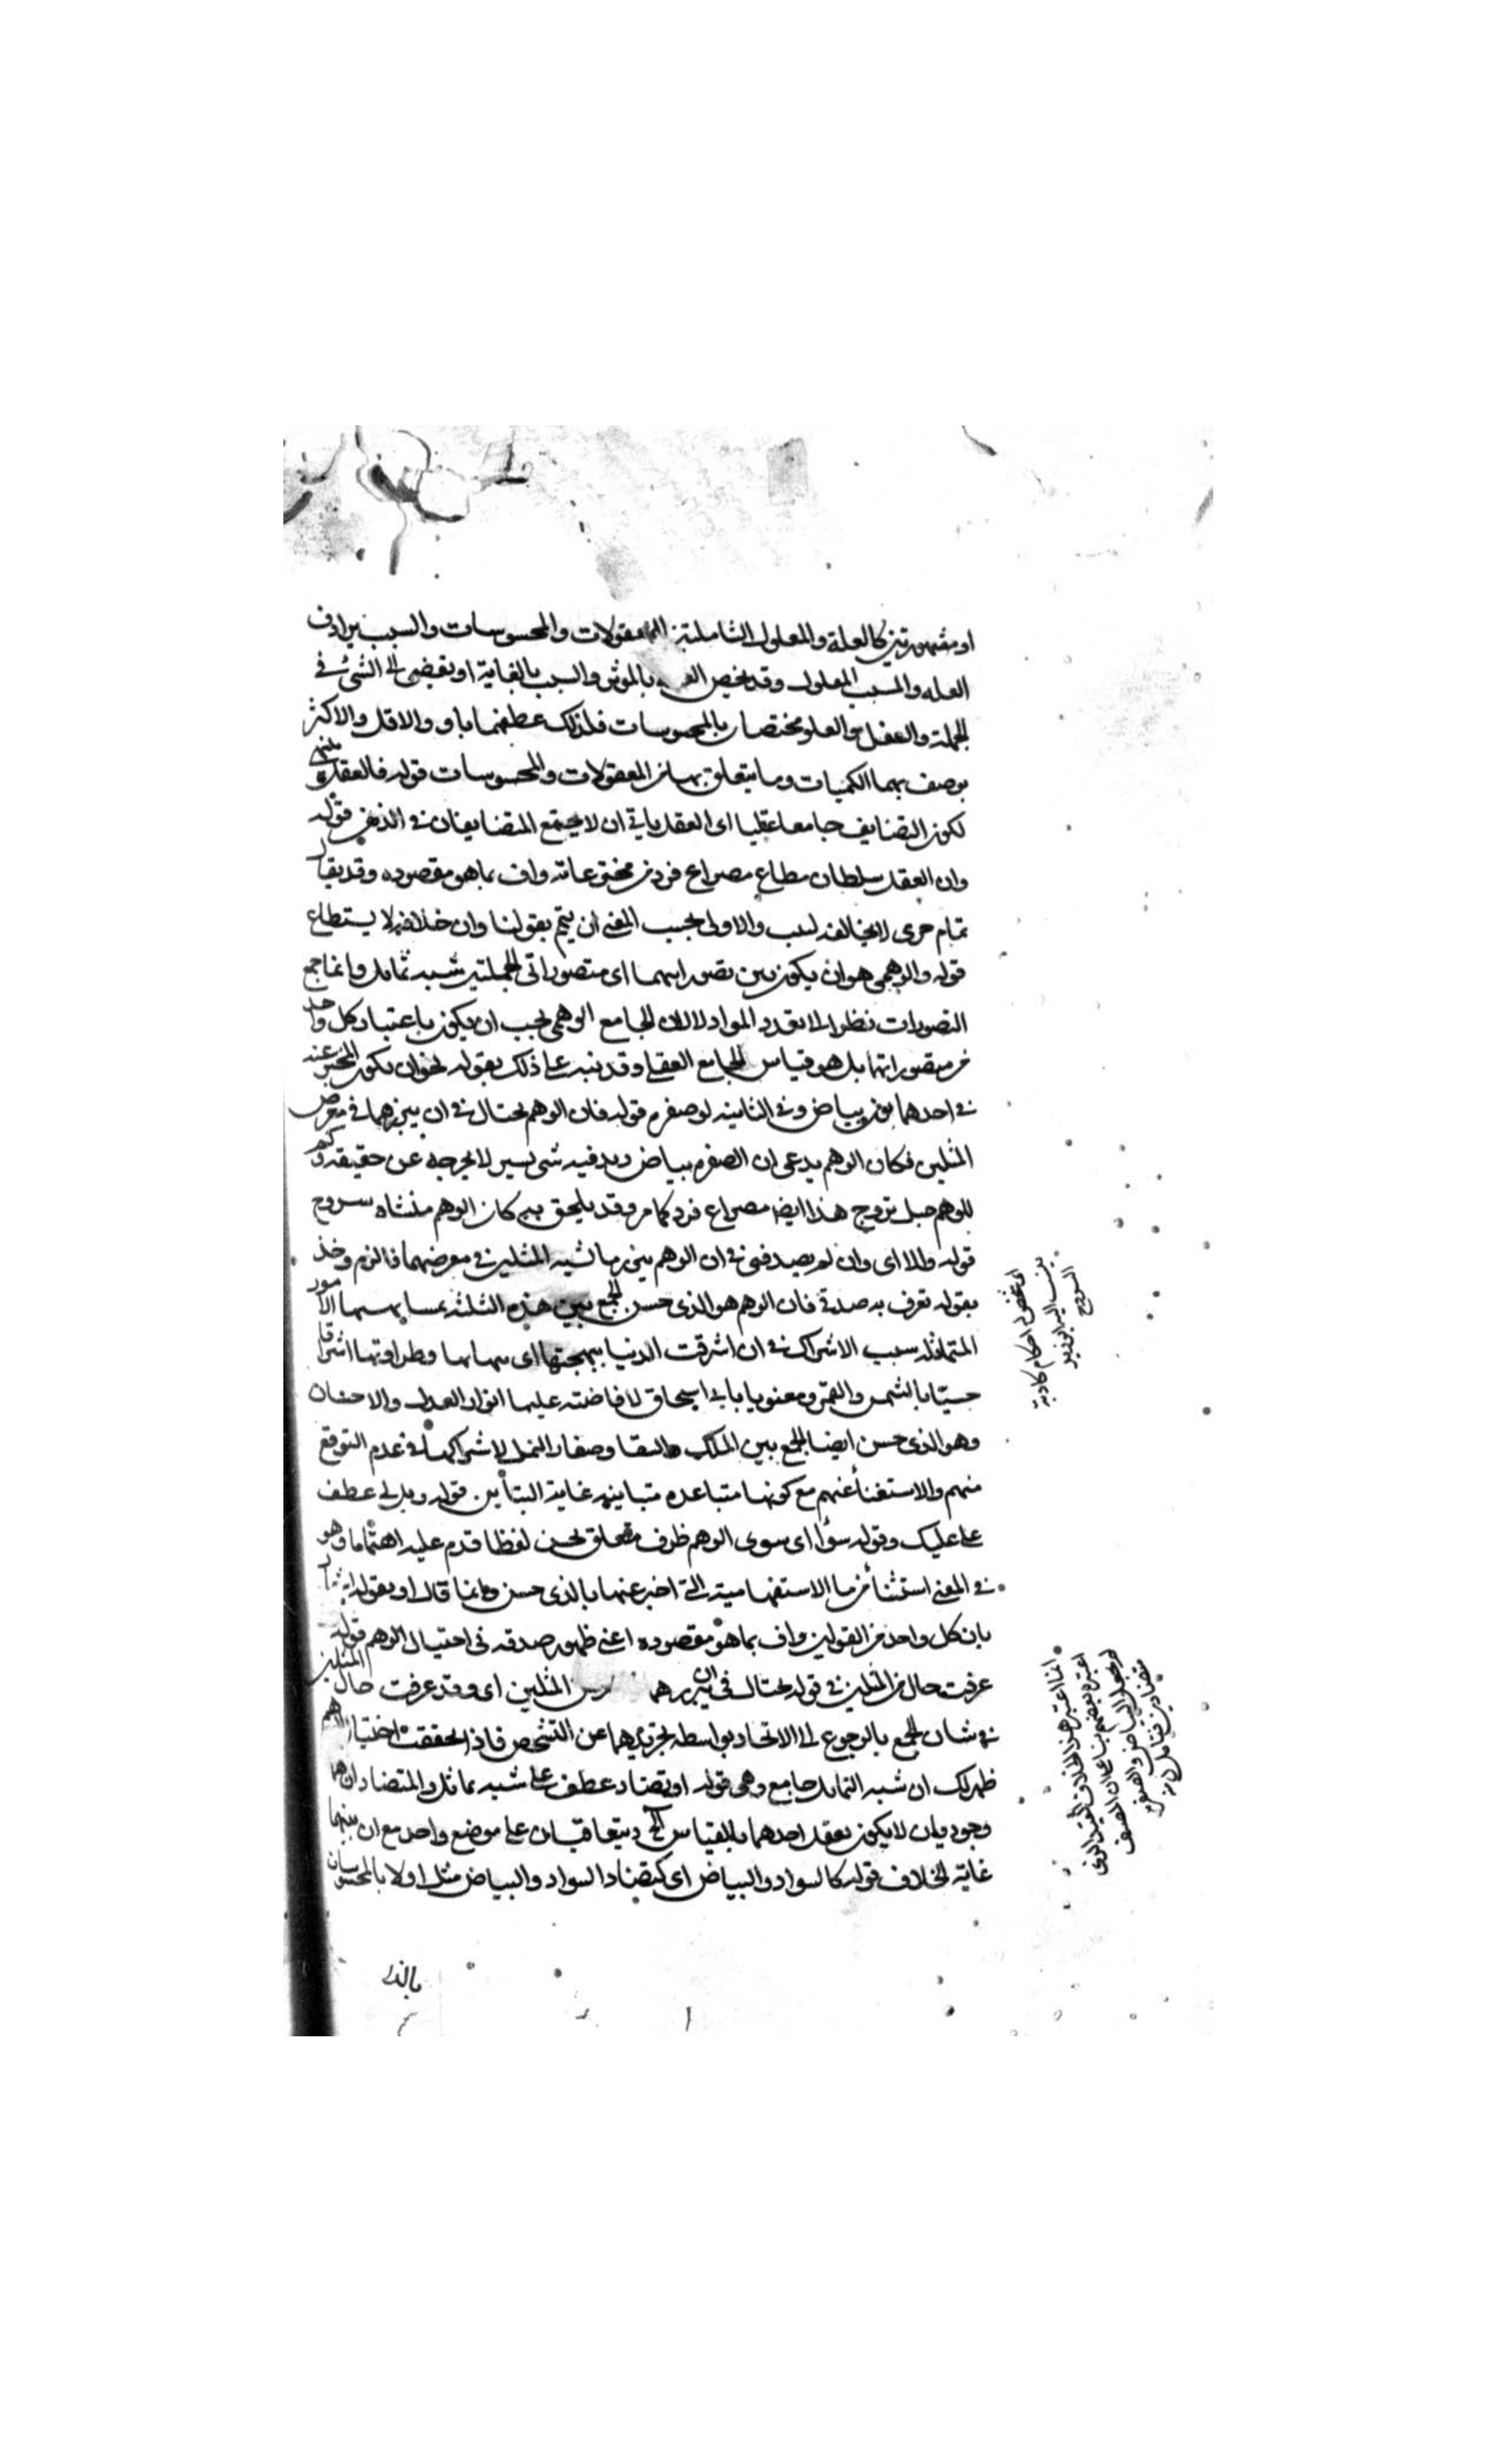 او مشهورتين كالعلة والمعلول الشاملتين المعقولات والمحسوسات والسبب يرادف
العله والمسبب المعلول وقد يخص العله بالموثر والسبب بالغاية او يفضى الى الشئ في
الجملة والسفل والعلو مختصان بالمحسوسات فلذلك عطفهما باو والاقل والاكثر
يوصف بهما الكميات وما يتعلق بها من المعقولات والمحسوسات قوله فالعقل
لكون التضايف جامعا عقليا اى العقل يابى ان لا يجتمع المتضايفان في الذهن قوله
وان العقل سلطان مطاع مصراع فرد من مخترعاته واف بما هو مقصوده وقد يقال
تمام حرى لا يخالفه لبيب والاولى بحسب المعنى ان يتم بقولنا وان خلافه لا يستطاع
قوله والوهمى هو ان يكون بين تصوراتهما اى متصوراتى الجملتين شبه تماثل وانما جمع
التصورات نظرا الى تعدد المواد لا لان الجامع الوهمى يجب ان يكون باعتبار كل واحد
من متصوراتهما بل هو قياس الجامع العقلى وقد نبه على ذلك بقوله نحو ان يكون المخبر عنه
في احدهما لون بياض وفي الثانية لون صفره قوله فان الوهم يحتال في ان يبرزهما في معرض
المثلين فكان الوهم يدعى ان الصفره بياض زيد فيه شئ يسير لا يخرجه عن حقيقته وكم
للوهم حيل تروج هذا ايضا مصراع فرد كما مر وقد يلحق به كان الوهم منشاه سروج
قوله والا اى وان لم يصدقنى في ان الوهم يبرز ما شبه المثلين في معرضهما فالزم وخذ
بقوله تعرف به صدقى فان الوهم هو الذى حسن الجمع بين هذه الثلثه الامور
المتماثله سبب الاشراك في ان اشرقت الدنيا ببهجتها اى بهائها وطراوتها اشراقا
حسيا بالشمس والقمر ومعنويا بابى اسحاق لافاضته عليها انوار العدل والاحسان
وهو الذى حسن ايضا الجمع بين الملك والسقا وصغار النمل لاشراكها في عدم التوقع
منهم والاستغناء عنهم مع كونها متباعده متباينه غاية التباين قوله وبل لى عطف
على عليك وقوله سوا اى سوى الوهم ظرف متعلق بحسن لفظا قدم عليه اهتماما وهو
في المعنى استثناء من ما الاستفهامية التى اخبر عنها بالذى حسن وانما قال او بقوله
بان كل واحد من القولين واف بما هو مقصوده اعنى ظهور صدقه في احتيال الوهم قوله
عرفت حال المثلين في قوله يحتال في ان يبرزهما المثلين اى وقد عرفت حال المثلين
في شان الجمع بالرجوع الى الاتحاد بواسطه تجريدهما عن التشخص فاذا تحققت احتيال الوهم
ظهر لك ان شبه التماثل جامع وهمى قوله او تضاد عطف على شبه تماثل والمتضادان هما
وجوديان لا يكون تعقل احدهما بالقياس الى الآخر ويتعاقبان على موضع واحد مع ان بينهما
غاية الخلاف قوله كالسواد والبياض اى كتضاد السواد والبياض مثل اولا بالمحسوسات
احكام كاذبة
ينسب اليه ابو زيد
السروجى
انما اعتبر هذا الخلاف
اعتبره بعضهم بناء على ان المصنف
لم يجعل البياض والصفره
متضادين فتامل